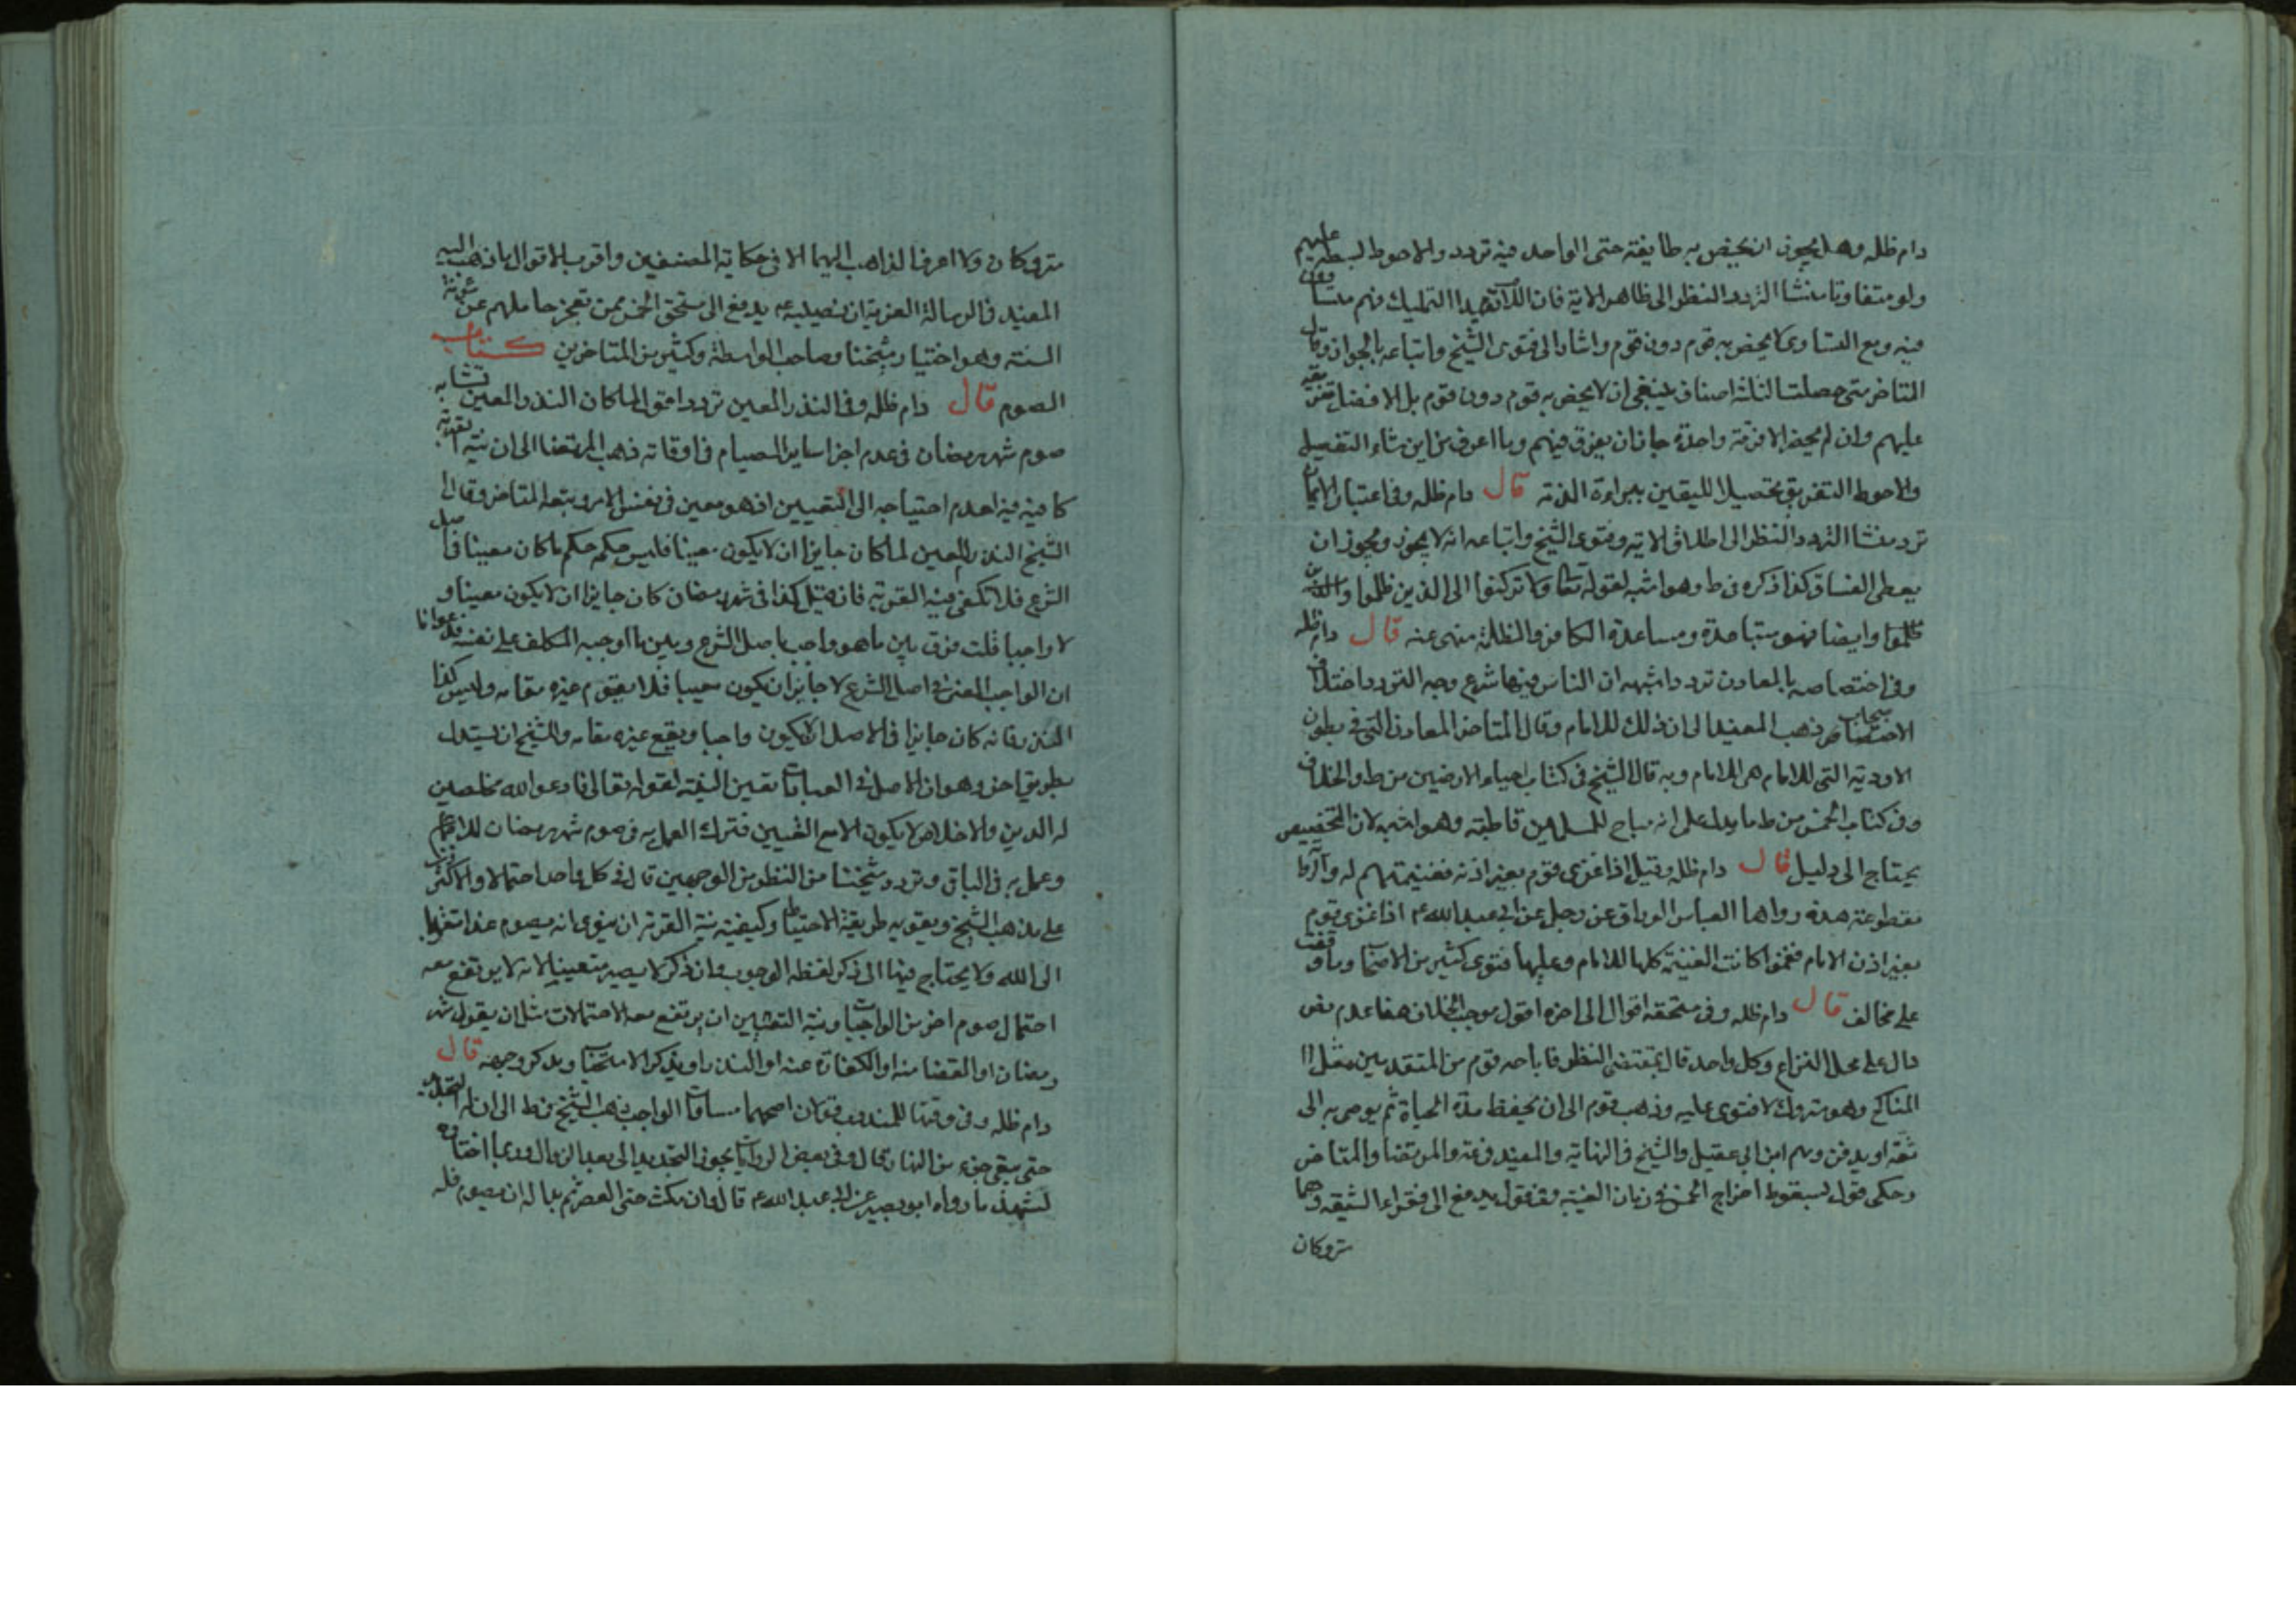 دام ظله وهل يجوز ان يخص به طايفة حتى الواحد فيه تردد والاحوط بسطه عليهم
ولو متفاوتا منشا التردد النظر الى ظاهر الاية فان اللام تفيد التمليك فهم
فيه ومع التساوى لا يخص به قوم دون قوم واشار الى فتوى الشيخ واتباعه بالجواز وقال
المتاخر متى حصلت الثلثة اصناف ينبغى ان لا يخص به قوم دون قوم بل الافضل تفرقته
عليهم وان لم يحضر الا فرقة واحدة جاز ان يفرق فيهم وما اعرف من اين نشاء التفصيل
والاحوط التفريق تحصيلا لليقين ببراءة الذمة قال دام ظله وفى اعتبار الايمان
تردد منشا التردد النظر الى اطلاق الاية وفتوى الشيخ واتباعه انه لا يجوز ويجوز ان
يعطى الفساق كذا ذكره فى ط وهو اشبه لقوله تعالى ولا تركنوا الى الذين ظلموا
ظلموا وايضا فهو مساعدة ومساعدة الكافر والظلمة منهى عنه قال دام ظله
وفى اختصاصه بالمعادن تردد اشبهه ان الناس فيها شرع وجه التردد اختلاف
الاصحاب ذهب المفيد الى ان ذلك للامام وقال المتاخر المعادن التى فى بطون
الاودية التى للامام هى للامام وبه قال الشيخ فى كتاب احياء الارضين من ط والخلاف
وفى كتاب الخمس من ط ما يدل على انه مباح للمسلمين قاطبة وهو اشبه لان التخصيص
يحتاج الى دليل قال دام ظله وقيل اذا غزى قوم بغير اذنه فغنيمتهم له والرواية
مقطوعة هذه رواها العباس الوراق عن رجل عن ابى عبد الله ع اذا غزى قوم
بغير اذن الامام فغنموا كانت الغنيمة كلها للامام وعليها فتوى كثير من الاصحاب وما وقفت
على مخالف قال دام ظله وفى مستحقه اقوال الى اخره اقول موجب الخلاف هنا عدم نص
دال على محل النزاع وكل واحد قال بمقتضى النظر فاباحه قوم من المتقدمين مثل
المناكح وهو متروك لا فتوى عليه وذهب قوم الى ان يحفظ مدة الحياة ثم يوصى به الى
ثقة او يدفن وهم ابن ابى عقيل والشيخ فى النهاية والمفيد فى عه والمرتضى والمتاخر
وحكى قول بسقوط اخراج الخمس فى زمان الغيبة وقول يدفع الى فقراء الشيعة وهما
متروكان
متروكان ولا اعرف الذاهب اليهما الا فى حكاية المصنفين واقرب الاقوال ما ذهب اليه
المفيد فى الرسالة الغرية ان نصيبه ع يدفع الى مستحق الخمس ممن تعجز حاصلهم عن مؤنة
السنة وهو اختيار شيخنا وصاحب الواسطة وكثير من المتاخرين كتاب
الصوم قال دام ظله وفى النذر المعين تردد اقول لما كان النذر المعين تشابه
صوم شهر رمضان فى عدم اجزا ساير الصيام فى اوقاته ذهب المرتضى الى ان نية القربة
كافية فيه لعدم احتياجه الى التعيين اذ هو معين فى نفس الامر وتبعه المتاخر وقال
الشيخ النذر المعين لما كان جايزا ان لا يكون معينا فليس حكمه حكم ما كان معينا فى اصل
الشرع فلا تكفى فيه القربة فان قيل كذا فى شهر رمضان كان جايزا ان لا يكون معينا و
لا واجبا قلت فرق بين ما هو واجب باصل الشرع وبين ما اوجبه المكلف على نفسه
ان الواجب المعين فى اصل الشرع لا جايز ان يكون معينا فلا يقوم غيره مقامه وليس كذا
النذر فانه كان جايزا فى الاصل ان لا يكون واجبا ويقع غيره مقامه وللشيخ ان يستدل
بطريق اخر وهو ان الاصل فى العبادات تعيين النية لقوله تعالى فادعوا الله مخلصين
له الدين والاخلاص لا يكون الا مع التعيين فترك العمل به فى صوم شهر رمضان للاجماع
وعمل به فى الباقى وتردد شيخنا من النظر من الوجهين قال فى كل واحد احتمالا والاكثرون
على مذهب الشيخ ويقويه طريقة الاحتياط وكيفية نية القربة ان ينوى انه يصوم غدا متقربا
الى الله ولا يحتاج فيها الى ذكر لفظه الوجوب وان ذكر لا يصير متعينا لانه لا يرتفع معه
احتمال صوم اخر من الواجبات ونية التعيين ان يرتفع معه الاحتمالات مثل ان يقول شهر
رمضان او القضا منه او الكفارة عنه او النذر او يذكر الاستحباب ويذكر وجهه قال
دام ظله وفى وقتها للمندوب قولان اصحهما مساواة الواجب ذهب الشيخ فى ط الى ان له التجديد
حتى يبقى جزء من النهار قال وفى بعض الروايات يجوز التجديد الى بعد الزوال وربما اختاره
لتشهد ما رواه ابو بصير عن ابى عبد الله ع قال وان مكث حتى العصر ثم بدا له ان يصوم فله